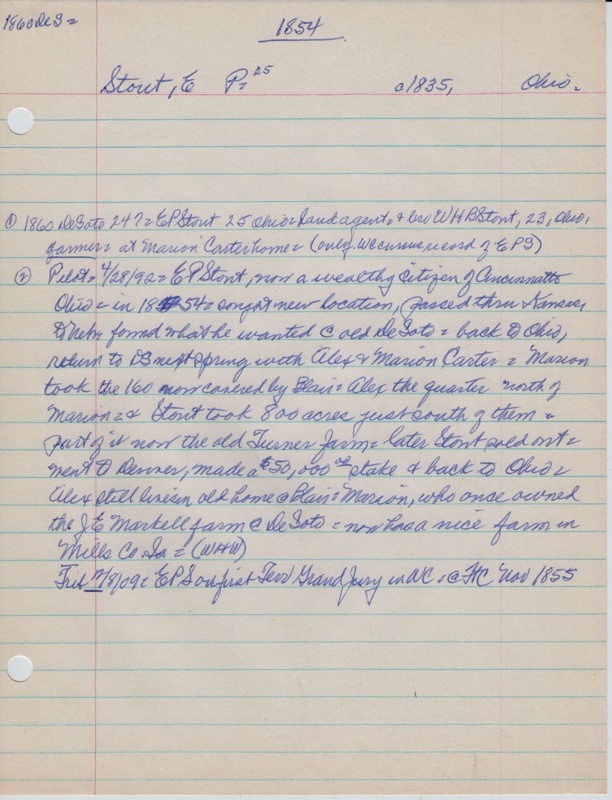 1860 DeS =
1854
Stout, E P = 25 c1835, Ohio.
① 1860 DeSoto 247 = E P Stout 25 Ohio = Land agent, & bro W H B Stout, 23, Ohio,
farmer = at Marion Carter home = (only W C census record of E P S)
② Pilot = 4/28/92 = E P Stout, now a wealthy citizen of Cincinnatti
Ohio = in 1854 = sought new location, passed thru Kansas,
& Nebr found what he wanted @ old DeSoto = back to Ohio,
return to DS next spring with Alex & Marion Carter = Marion
took the 160 now covered by Blair = Alex the quarter north of
Marion = & Stout took 800 acres just south of them &
part of it now the old Turner farm = later Stout sold out =
went to Denver, made a $50,000 stake & back to Ohio =
Alex still lives in old home @ Blair = Marion, who once owned
the J E Markell farm @ DeSoto = now has a nice farm in
Mills Co Ia = (WHW)
Trib /8/09 = E P S on first Terr Grand Jury in WC = @ FtC Nov 1855